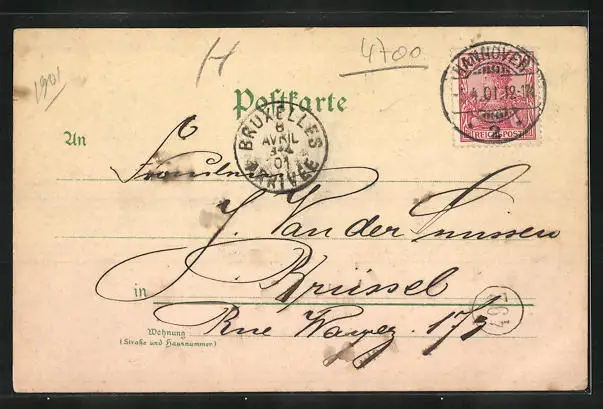 1901
H
4700
HANNOVER
4.01.12-1
2
REICHSPOST
Postkarte
BRUXELLES
8
AVRIL
3-4
01
ARRIVEE
An
J. Van der
in Brüssel
Rue Wayez 173
Wohnung
(Straße und Hausnummer)